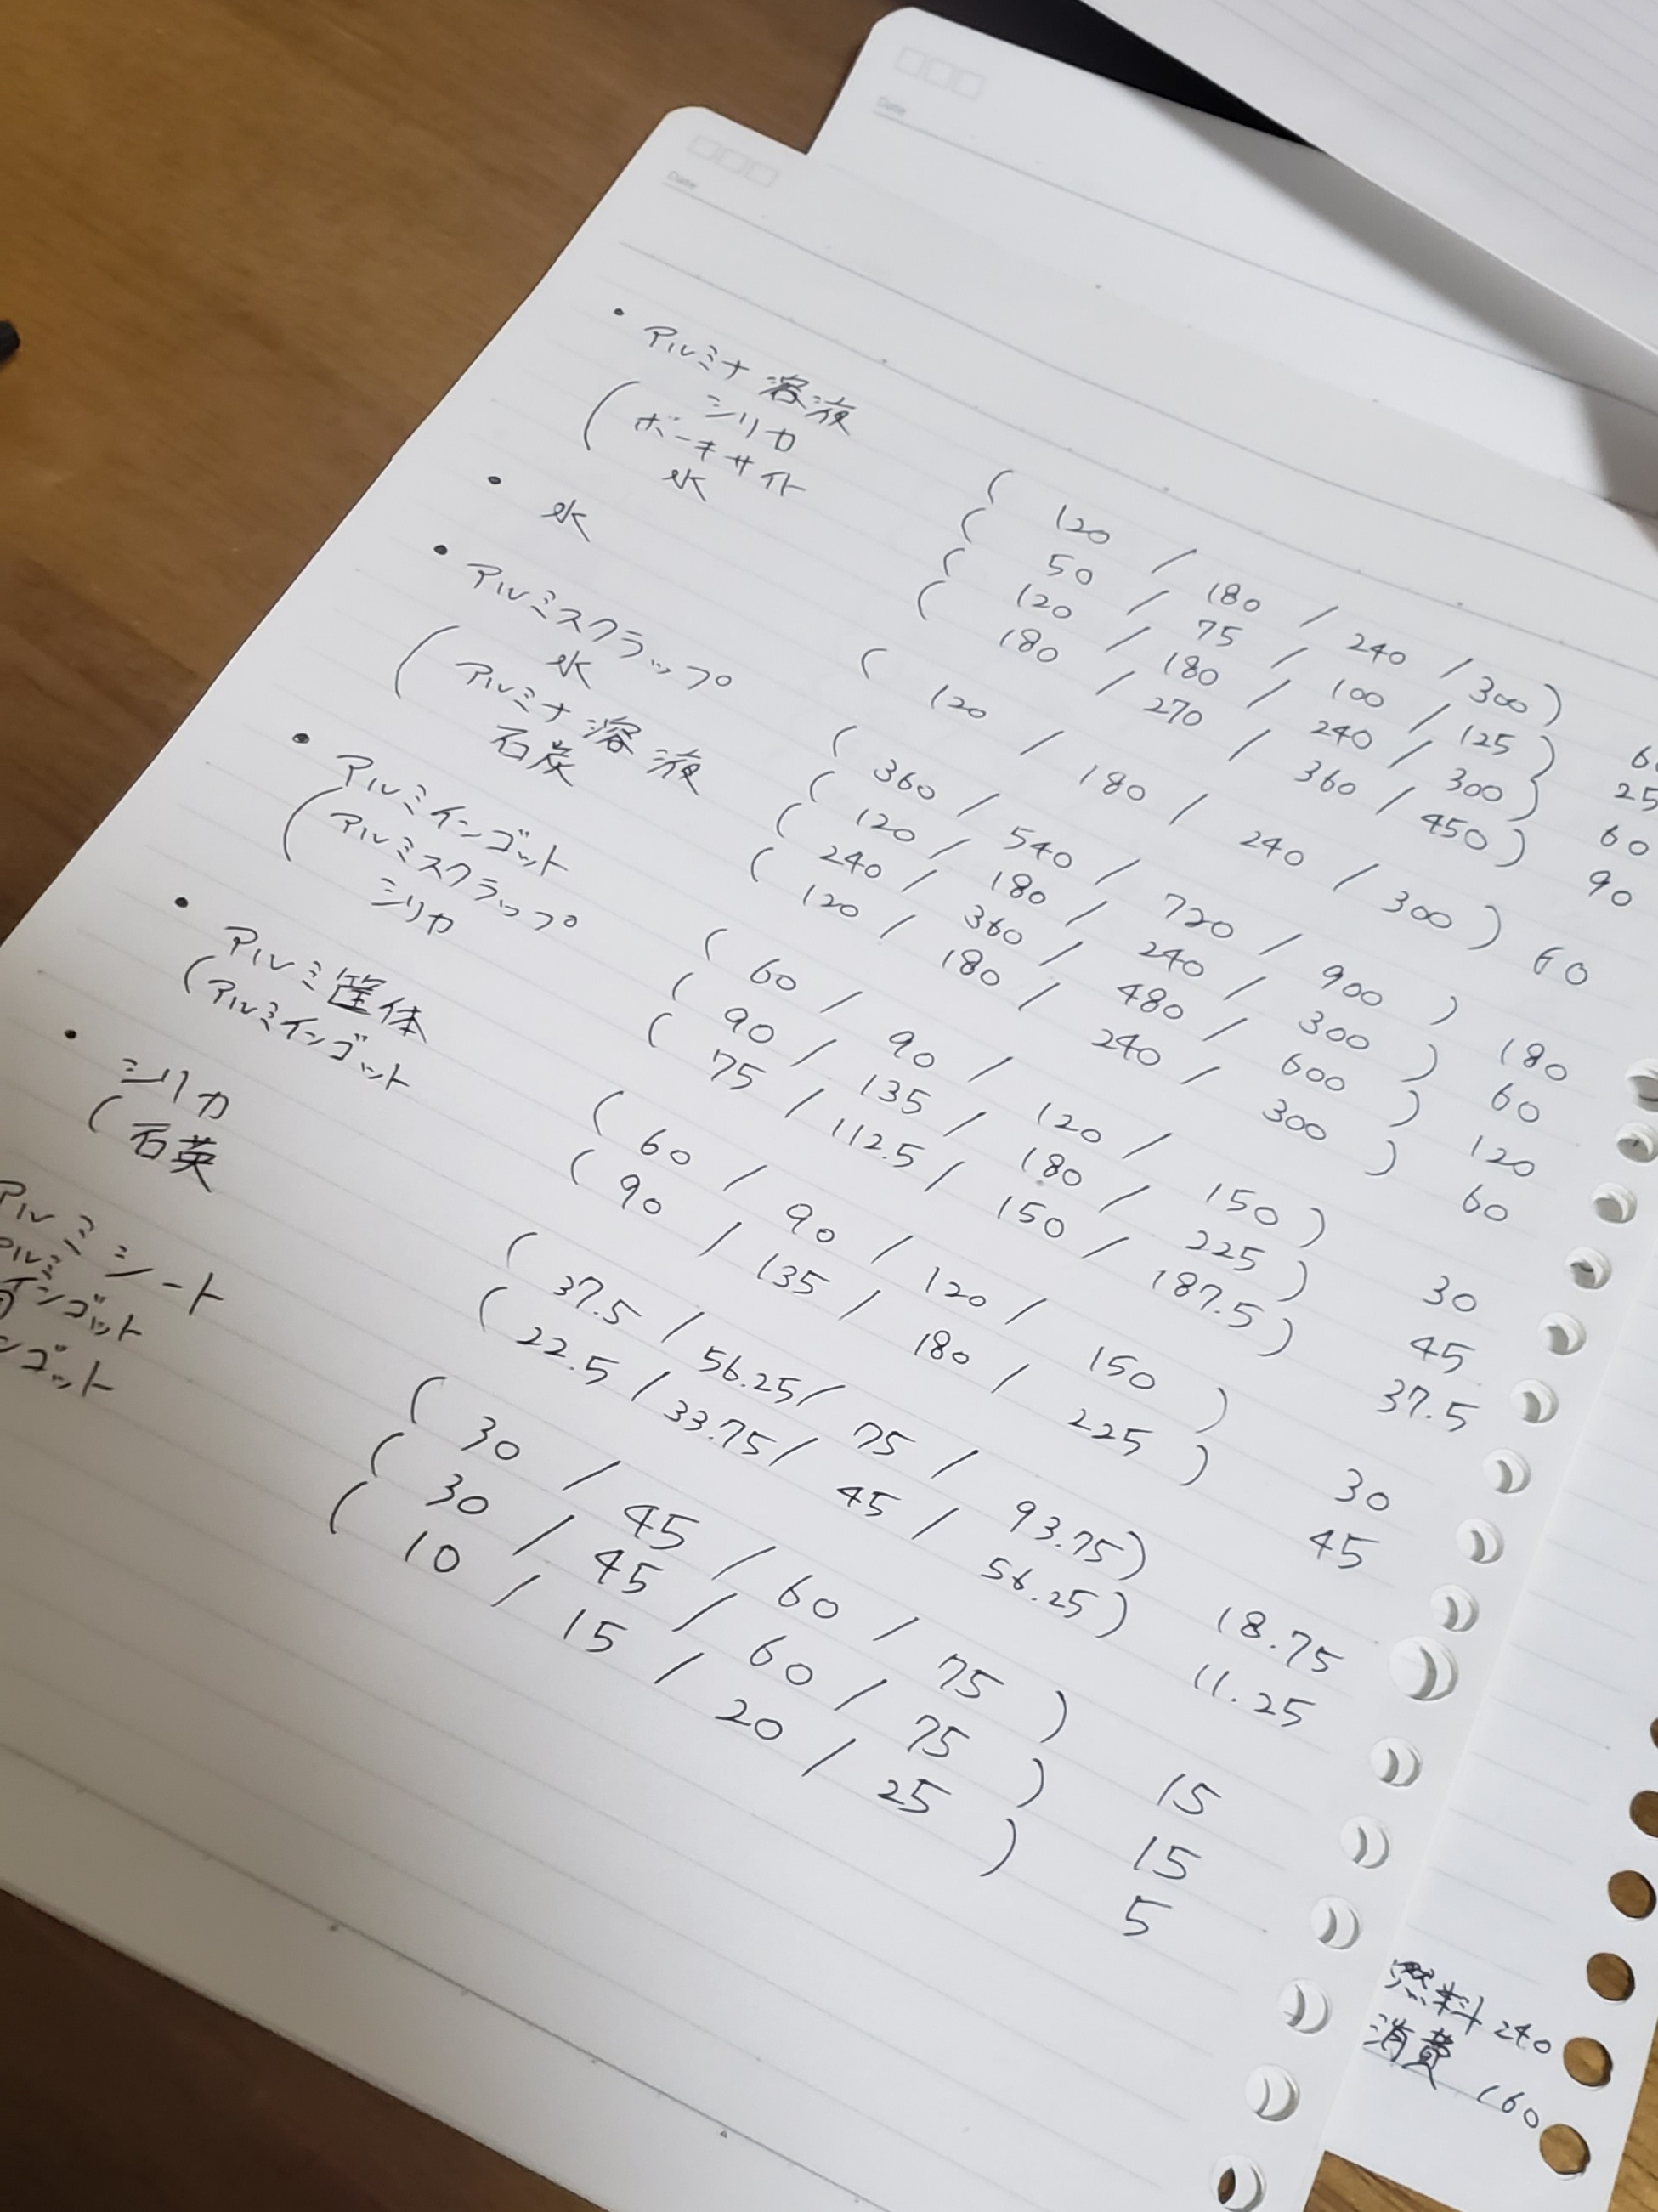 Date
Date
・アルミナ溶液 ( 120 / 180 / 240 / 300 ) 6
( シリカ ( 50 / 75 / 100 / 125 ) 25
ボーキサイト ( 120 / 180 / 240 / 300 ) 60
水 ( 180 / 270 / 360 / 450 ) 90
・水 ( 120 / 180 / 240 / 300 ) 60
・アルミスクラップ ( 360 / 540 / 720 / 900 ) 180
( 水 ( 120 / 180 / 240 / 300 ) 60
アルミナ溶液 ( 240 / 360 / 480 / 600 ) 120
石炭 ( 120 / 180 / 240 / 300 ) 60
・アルミインゴット ( 60 / 90 / 120 / 150 ) 30
( アルミスクラップ ( 90 / 135 / 180 / 225 ) 45
シリカ ( 75 / 112.5 / 150 / 187.5 ) 37.5
・アルミ筐体 ( 60 / 90 / 120 / 150 ) 30
( アルミインゴット ( 90 / 135 / 180 / 225 ) 45
・シリカ ( 37.5 / 56.25 / 75 / 93.75 ) 18.75
( 石英 ( 22.5 / 33.75 / 45 / 56.25 ) 11.25
アルミシート ( 30 / 45 / 60 / 75 ) 15
アルミインゴット ( 30 / 45 / 60 / 75 ) 15
ンゴット ( 10 / 15 / 20 / 25 ) 5
燃料 240
消費 160